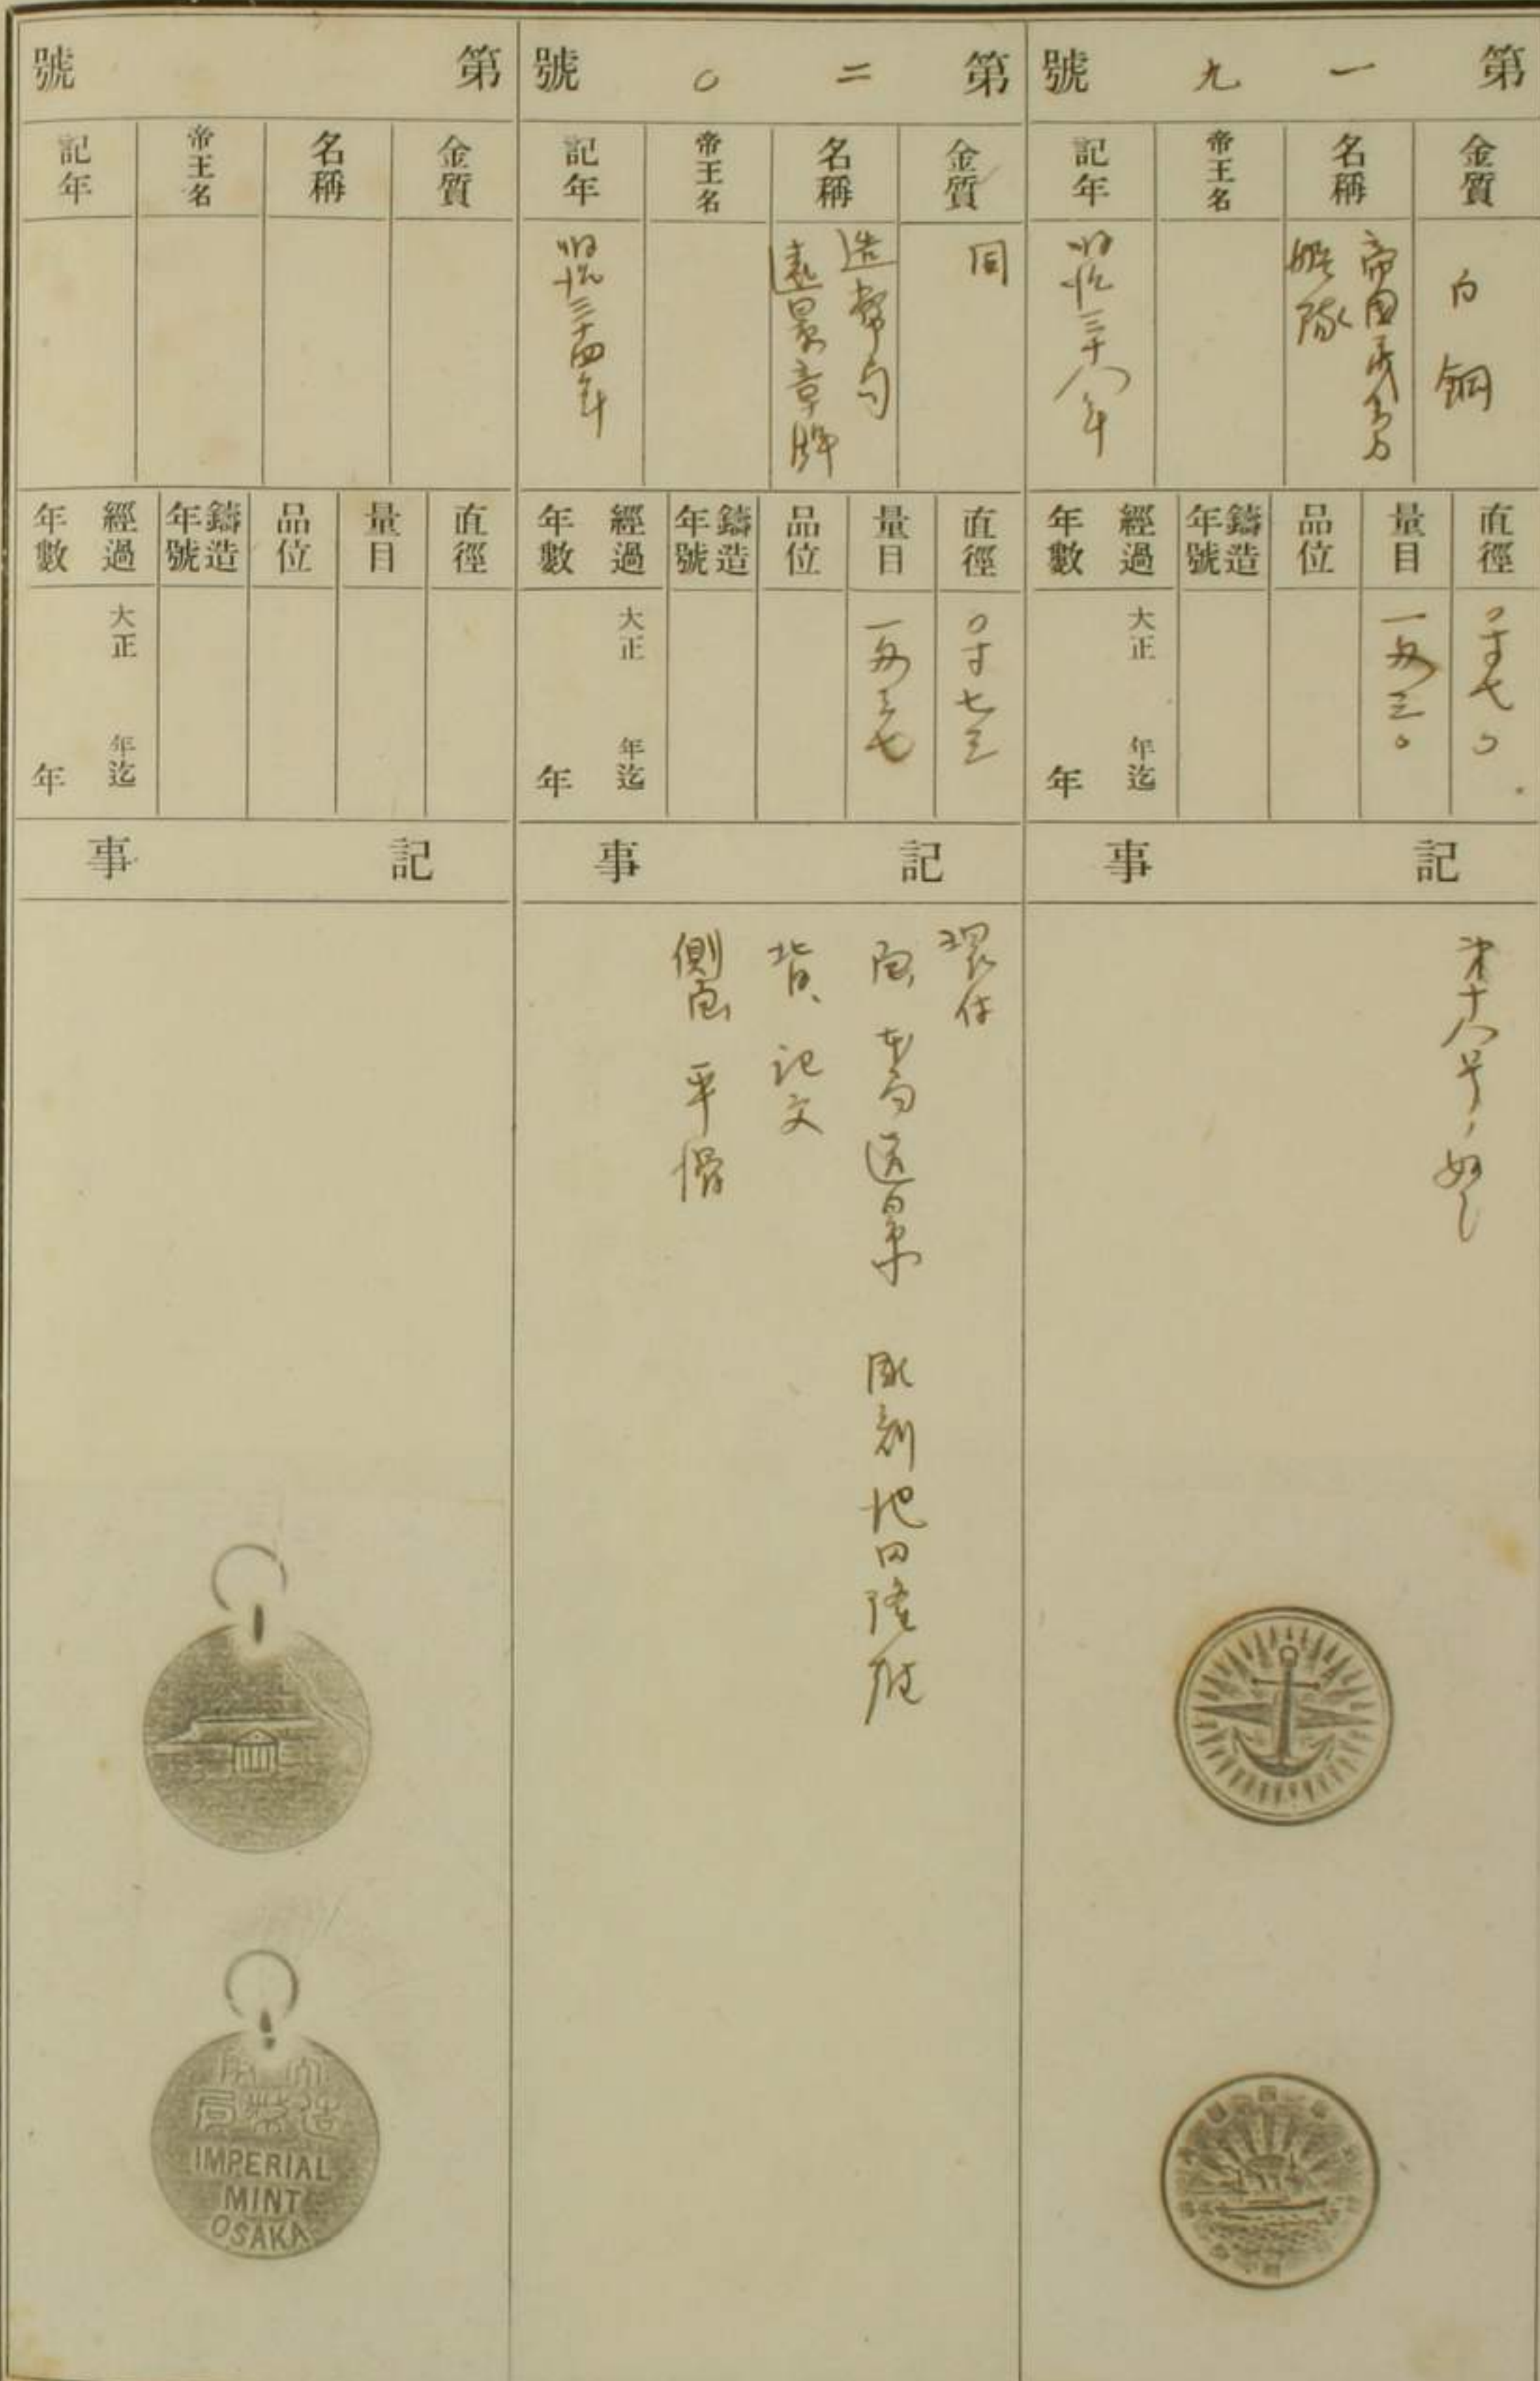 第一九號
金質
白銅
名稱
帝國義勇
艦隊
帝王名
記年
明治三十八年
直徑
〇寸七〇
量目
一匁三〇
品位
鑄造
年號
經過
年數
大正 年迄
年
記事
第十八号ノ如シ
第二〇號
金質
同
名稱
造幣局
遠景章牌
帝王名
記年
明治三十四年
直徑
〇寸七三
量目
一匁三七
品位
鑄造
年號
經過
年數
大正 年迄
年
記事
環付
面 本局遠景 彫刻池田隆雄
背 記文
側面 平滑
第 號
金質
名稱
帝王名
記年
直徑
量目
品位
鑄造
年號
經過
年數
大正 年迄
年
記事
造幣局
IMPERIAL
MINT
OSAKA